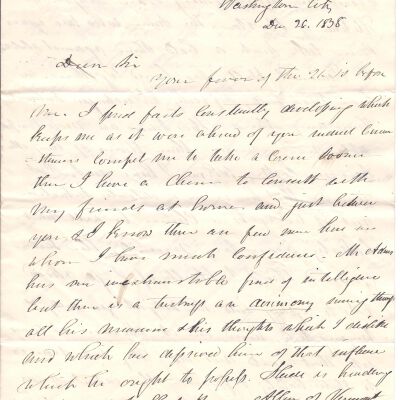 Washington City
Dec 26. 1838
Dear Sir
Your favor of the is before
me I find facts constantly developing which
keeps me as it were ahead of you and circum
=stances compel me to take a course sooner
than I have a chance to consult with
my friends at home and just between
you & I know there are few men here in
whom I have much confidence. Mr Adams
has an inexhaustible fund of intelligence
but there is a tartness an acrimony running through
all his measures & his thoughts which I dislike
and which has deprived him of that influence
which he ought to possess. Slade is heading
Allen of Vermont